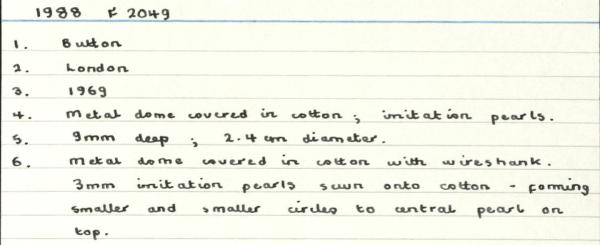 1988 F 2049
1. Button
2. London
3. 1969
4. Metal dome covered in cotton; imitation pearls.
5. 9mm deep; 2.4 cm diameter.
6. Metal dome covered in cotton with wireshank.
3mm imitation pearls sewn onto cotton - forming
smaller and smaller circles to central pearl on
top.